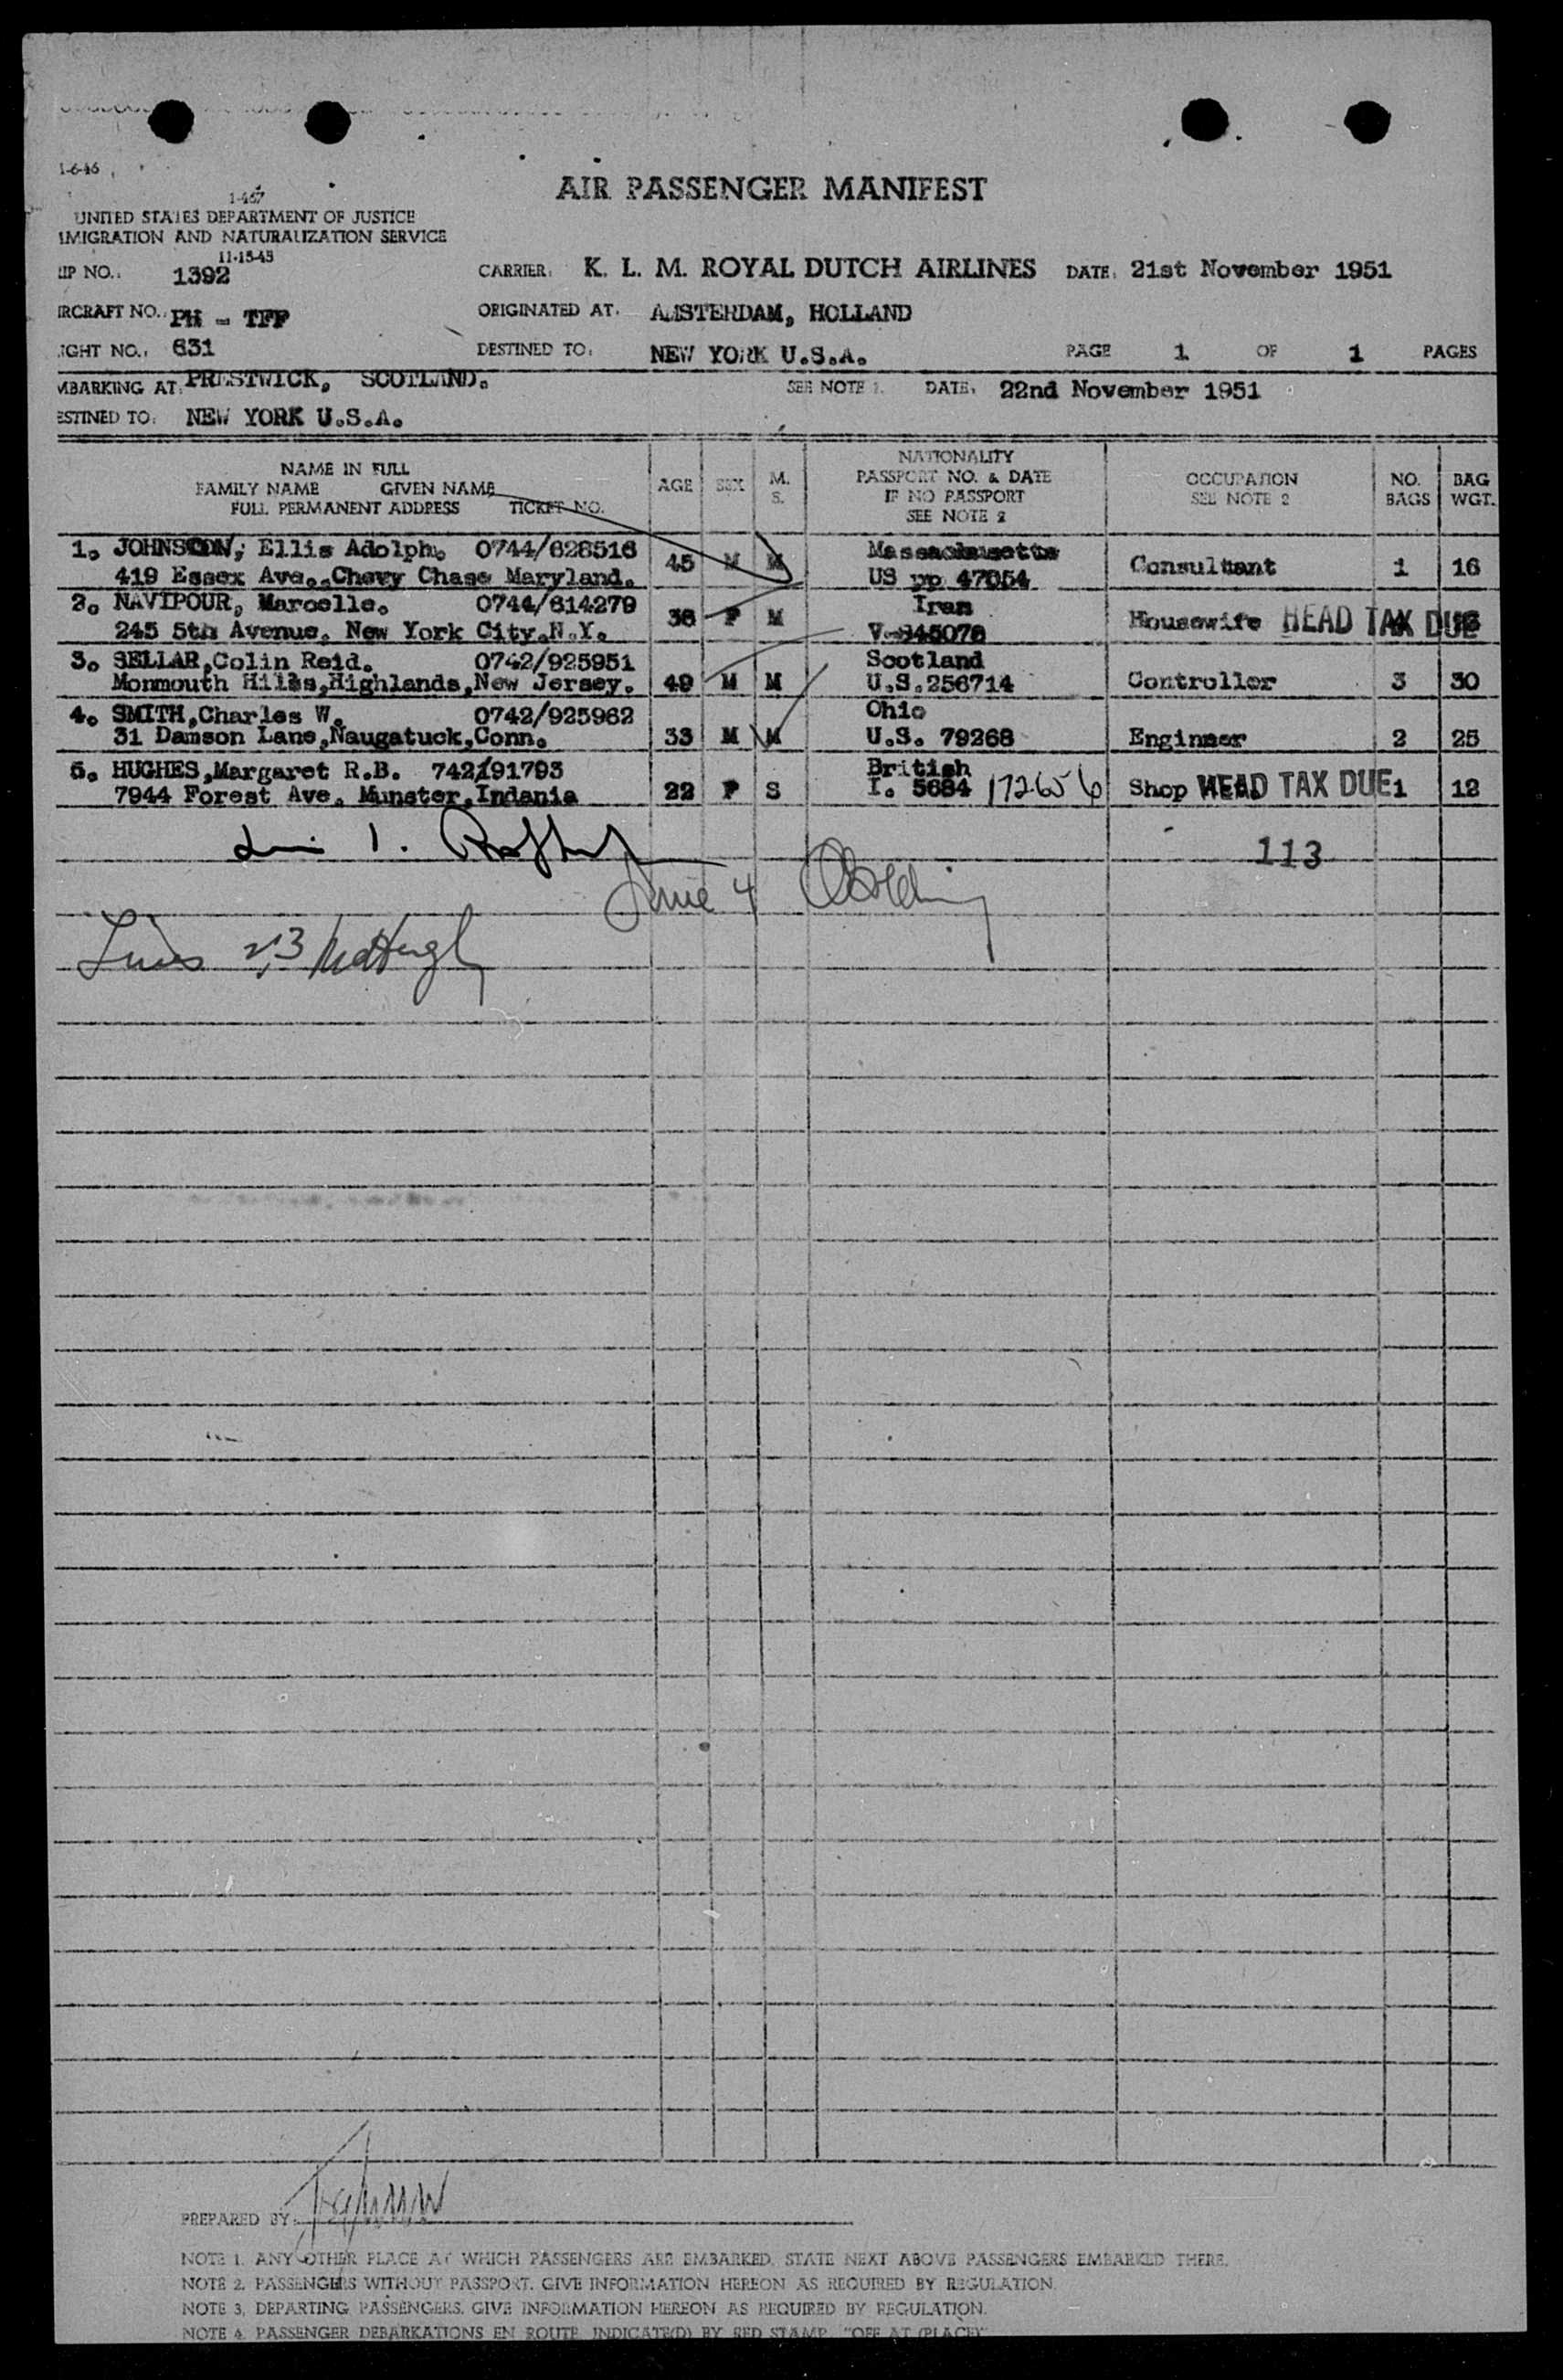 1-6-46
1-467
AIR PASSENGER MANIFEST
UNITED STATES DEPARTMENT OF JUSTICE
IMIGRATION AND NATURALIZATION SERVICE
11-15-45
IP NO.: 1392 CARRIER: K. L. M. ROYAL DUTCH AIRLINES DATE: 21st November 1951
IRCRAFT NO.: PH - TFP ORIGINATED AT: AMSTERDAM, HOLLAND
IGHT NO.: 631 DESTINED TO: NEW YORK U.S.A. PAGE 1 OF 1 PAGES
MBARKING AT: PRESTWICK, SCOTLAND. SEE NOTE 1. DATE: 22nd November 1951
ESTINED TO: NEW YORK U.S.A.
NAME IN FULL
FAMILY NAME GIVEN NAME
FULL PERMANENT ADDRESS TICKET NO. AGE SEX M. S. NATIONALITY PASSPORT NO. & DATE IF NO PASSPORT SEE NOTE 2 OCCUPATION SEE NOTE 2 NO. BAGS BAG WGT.
1. JOHNSON, Ellis Adolph. 0744/628516 Massachusetts
419 Essex Ave.,Chevy Chase Maryland. 45 M M US pp 47054 Consultant 1 16
2. NAVIPOUR, Marcelle. 0744/614279 Iran
245 5th Avenue. New York City.N.Y. 36 F M V-945078 Housewife HEAD TAX DUE
3. SELLAR,Colin Reid. 0742/925951 Scotland
Monmouth Hills,Highlands,New Jersey. 49 M M U.S.256714 Controller 3 30
4. SMITH,Charles W. 0742/925962 Ohio
31 Damson Lane,Naugatuck,Conn. 33 M M U.S. 79268 Engineer 2 25
5. HUGHES,Margaret R.B. 742/191793 British
7944 Forest Ave. Munster,Indania 22 F S I. 5684 172656 Shop HEAD TAX DUE 1 12
113
Line 4
Lines 2,3
PREPARED BY:
NOTE 1. ANY OTHER PLACE AT WHICH PASSENGERS ARE EMBARKED. STATE NEXT ABOVE PASSENGERS EMBARKED THERE.
NOTE 2. PASSENGERS WITHOUT PASSPORT. GIVE INFORMATION HEREON AS REQUIRED BY REGULATION.
NOTE 3. DEPARTING PASSENGERS. GIVE INFORMATION HEREON AS REQUIRED BY REGULATION.
NOTE 4. PASSENGER DEBARKATIONS EN ROUTE INDICATE(D) BY RED STAMP "OFF AT (PLACE)"